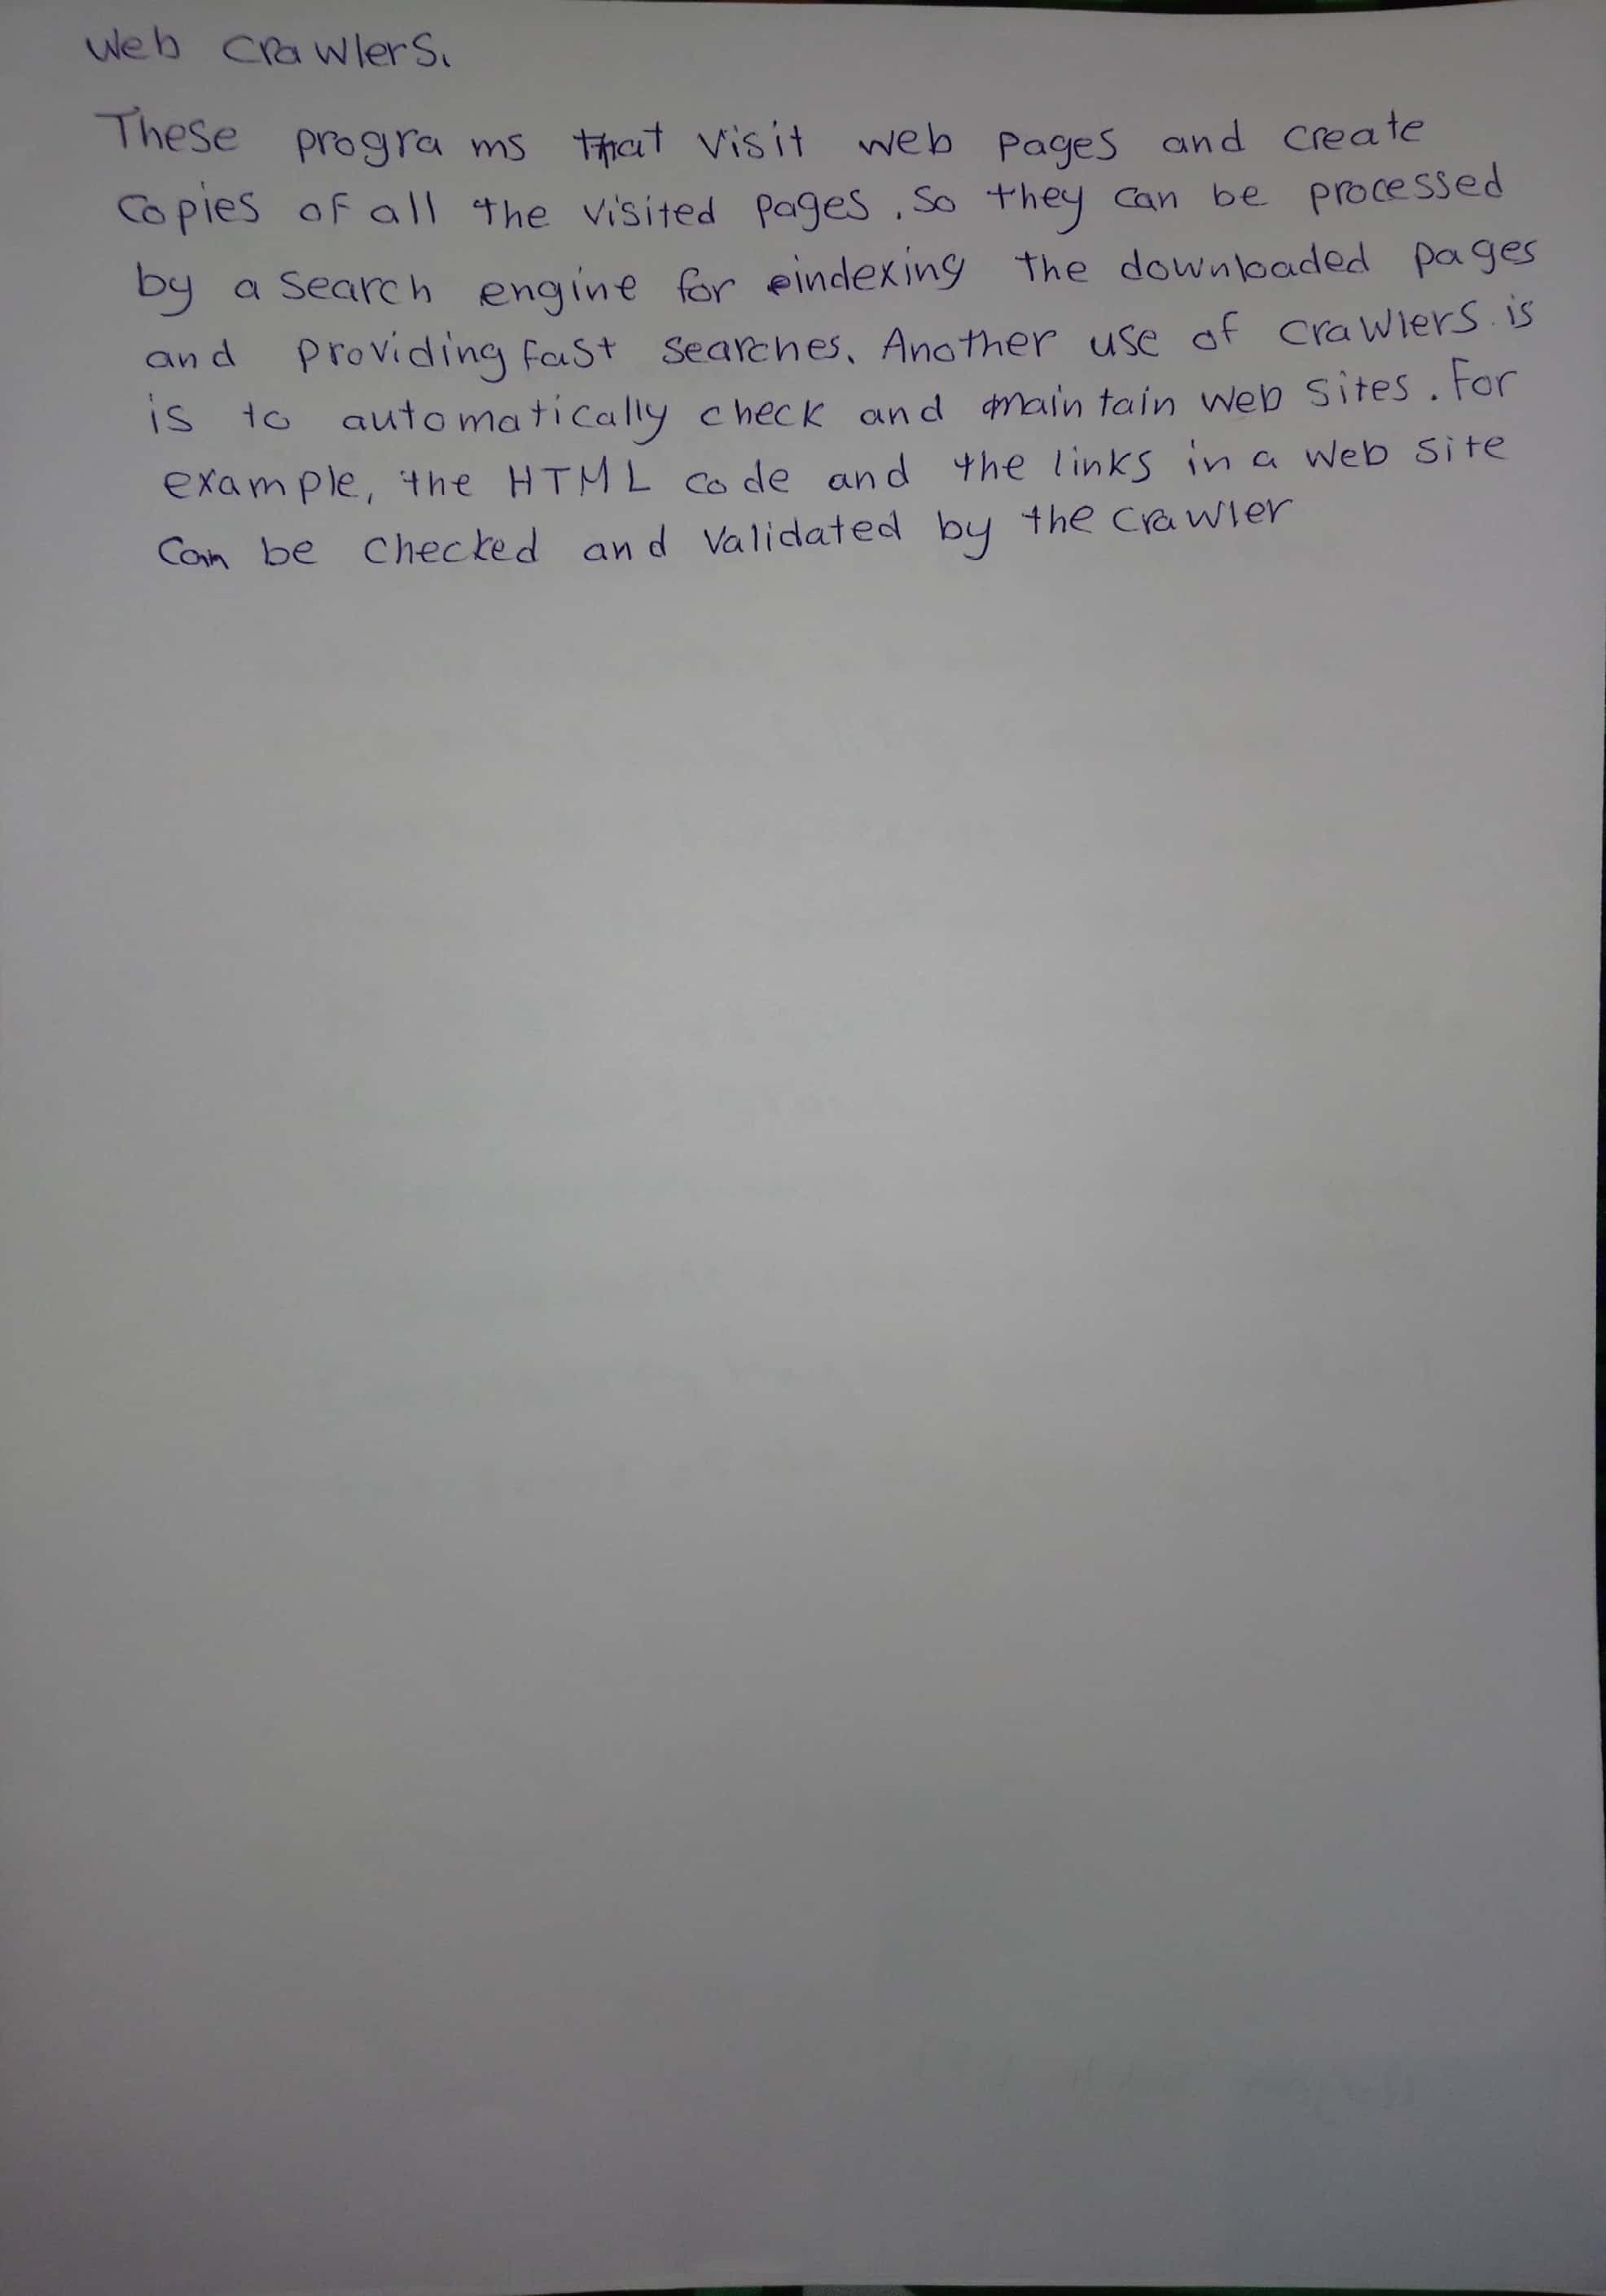 Web Crawlers.
These programs that visit web pages and create
copies of all the visited pages. So they can be processed
by a search engine for indexing the downloaded pages
and providing fast searches. Another use of crawlers is
is to automatically check and maintain web sites. For
example, the HTML code and the links in a web site
can be checked and validated by the crawler